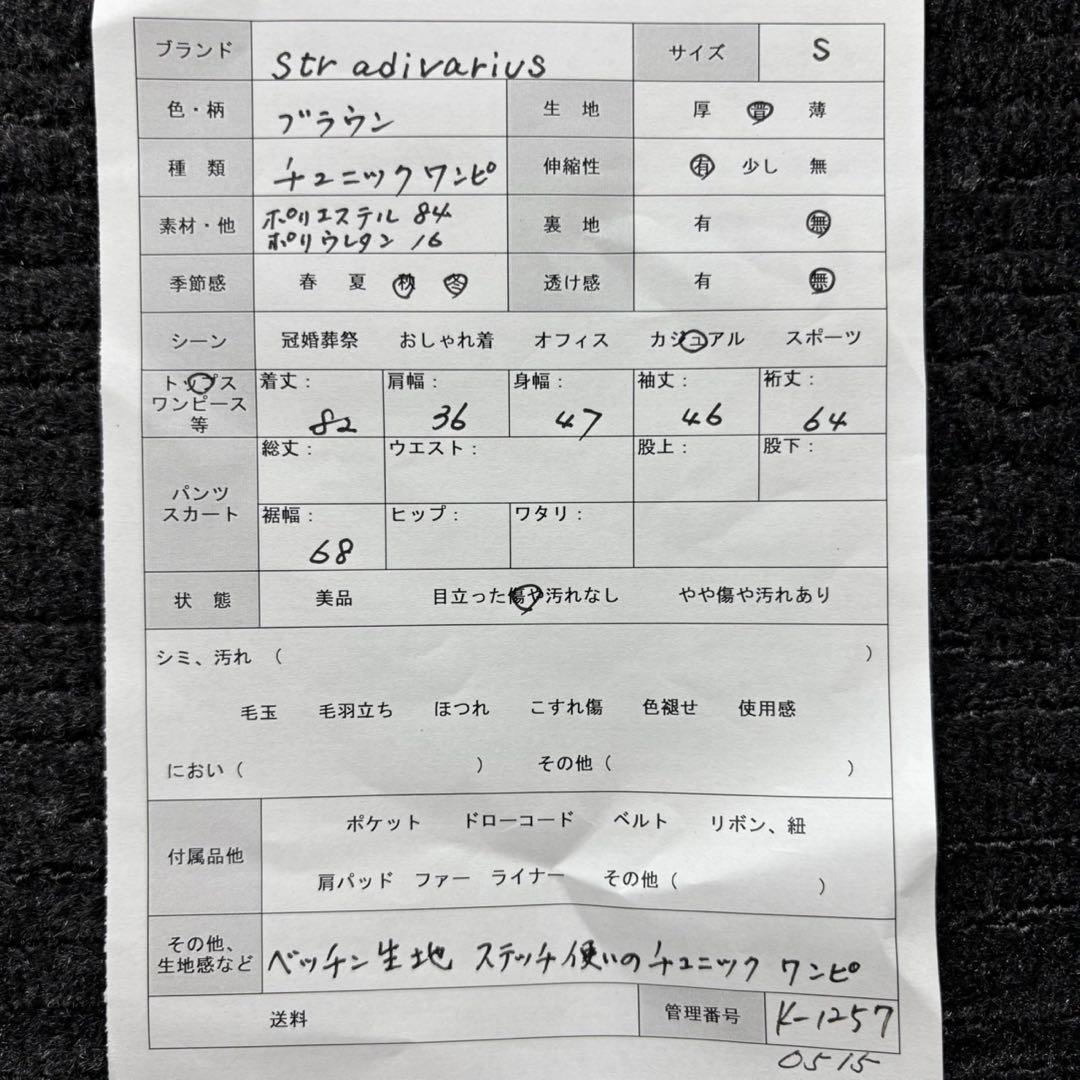 ブランド Stradivarius サイズ S
色・柄 ブラウン 生 地 厚 普 薄
種 類 チュニックワンピ 伸縮性 有 少し 無
素材・他 ポリエステル 84
ポリウレタン 16
裏 地 有 無
季節感 春 夏 秋 冬 透け感 有 無
シーン 冠婚葬祭 おしゃれ着 オフィス カジュアル スポーツ
トップス
ワンピース
等
着丈: 肩幅: 身幅: 袖丈: 裄丈:
82 36 47 46 64
パンツ
スカート
総丈: ウエスト: 股上: 股下:
裾幅: ヒップ: ワタリ:
68
状 態 美品 目立った傷や汚れなし やや傷や汚れあり
シミ、汚れ ( )
毛玉 毛羽立ち ほつれ こすれ傷 色褪せ 使用感
におい ( ) その他 ( )
付属品他 ポケット ドローコード ベルト リボン、紐
肩パッド ファー ライナー その他 ( )
その他、
生地感など
ベッチン生地 ステッチ使いのチュニック ワンピ
送料 管理番号 K-1257
0515